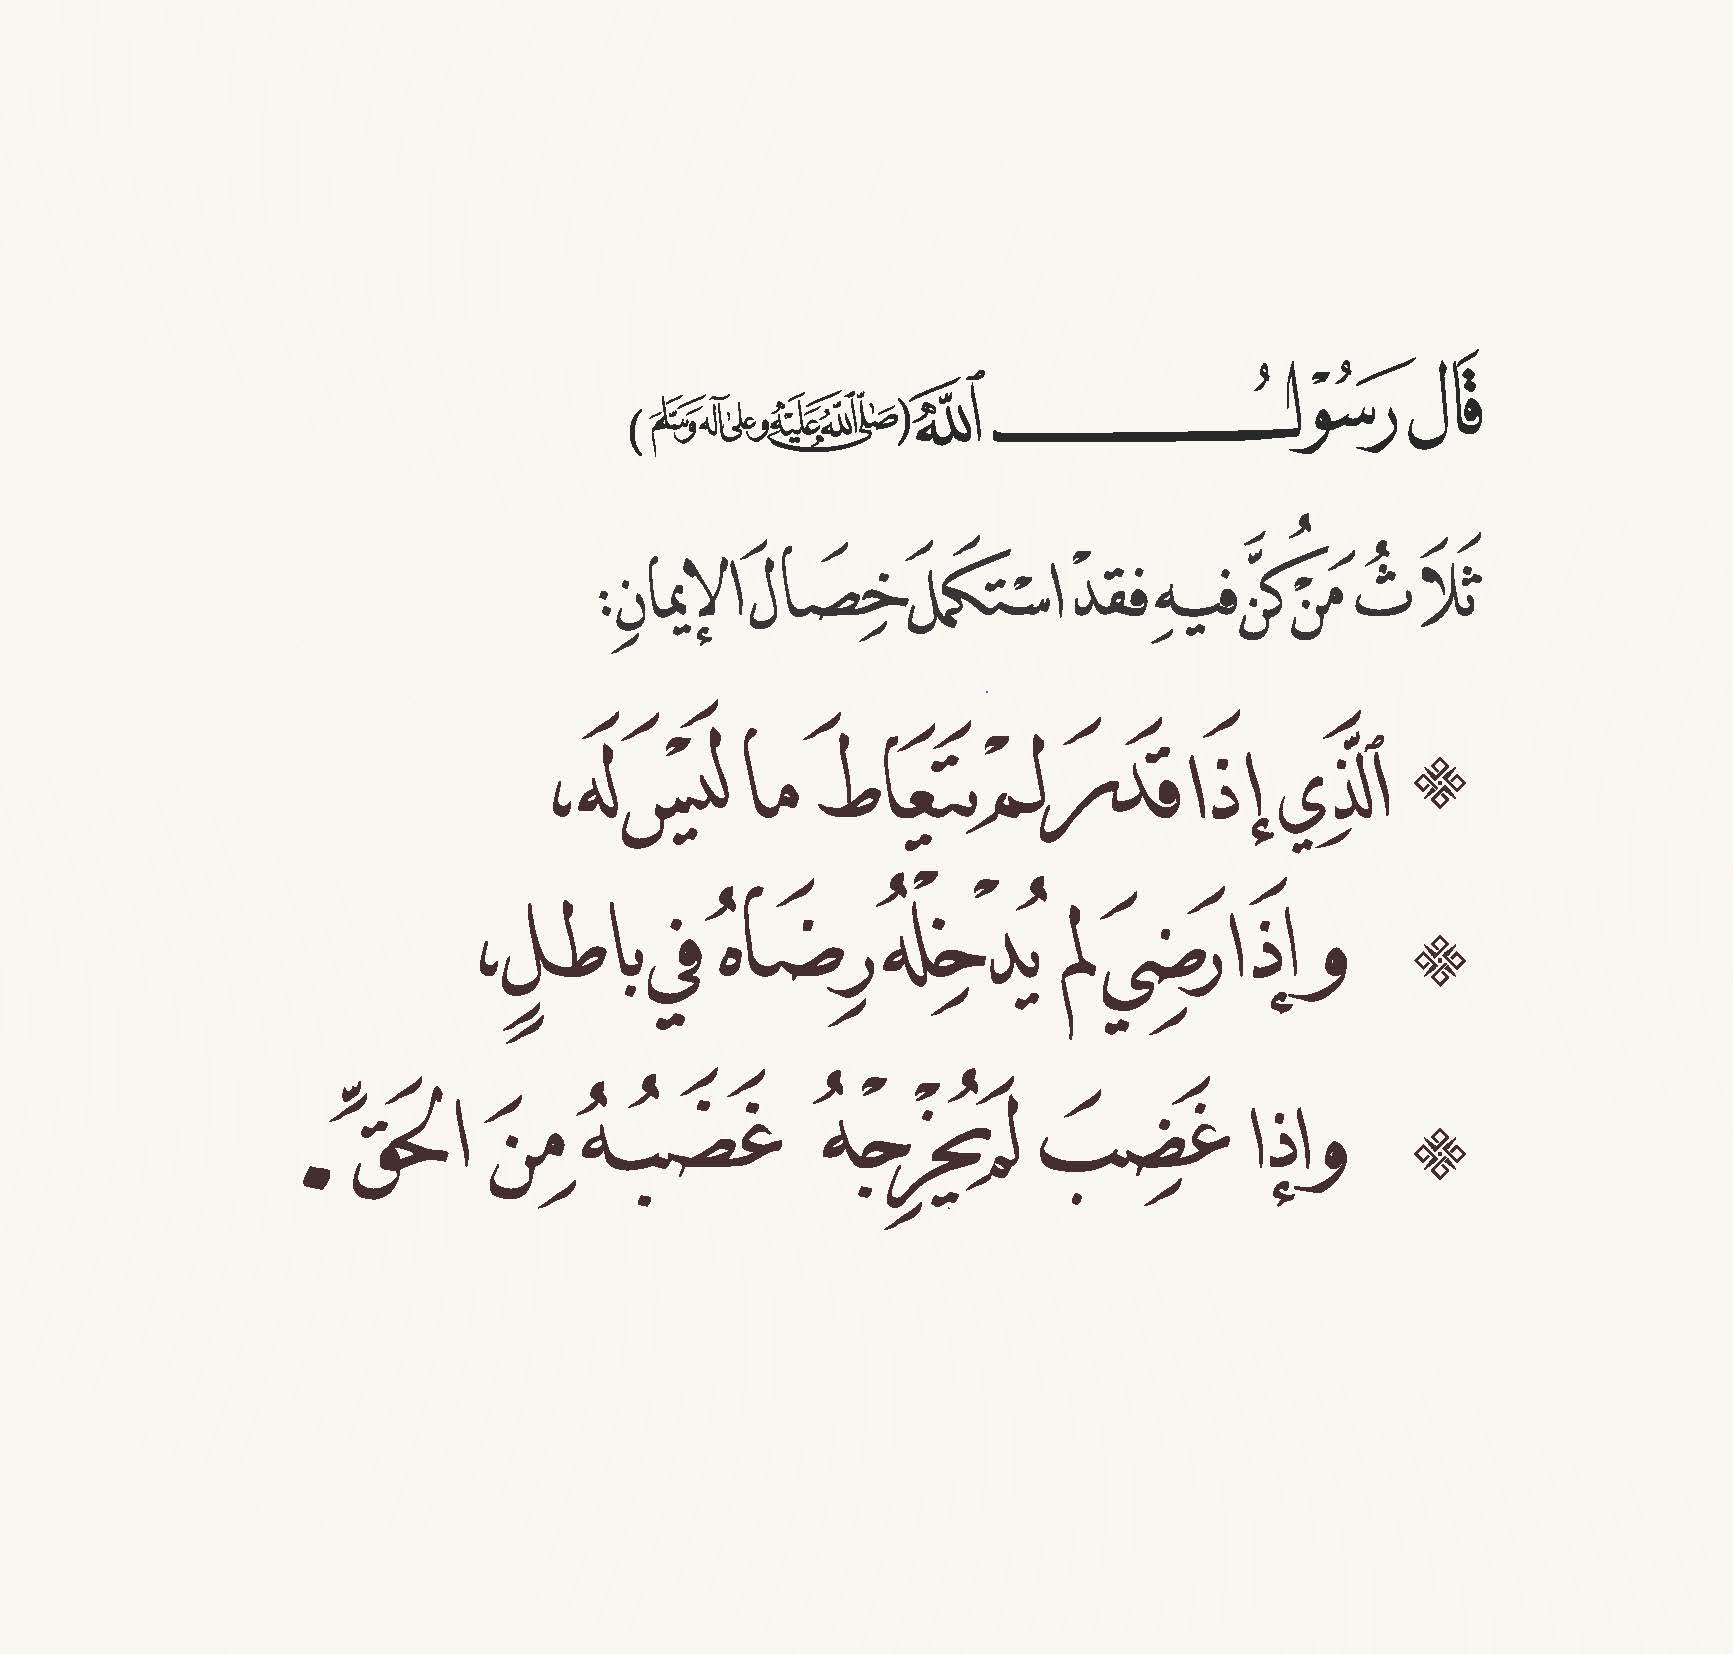 قَالَ رَسُوْلُ ٱللَّهُ (صَلَّى ٱللَّهُ عَلَيْهِ وعلىٰ آله وَسَلَّمَ)
ثَلَاثٌ مَنْ كُنَّ فيهِ فقدْ اسْتَكمَلَ خِصَالَ الإيمانِ:
ٱلَّذِي إذَا قَدَرَ لَمْ يَتَعَاطَ ما لَيْسَ لَه،
وإذَا رَضِيَ لم يُدْخِلْهُ رِضَاهُ في باطلٍ،
وإذا غَضِبَ لَم يُخْرِجْهُ غَضَبُهُ مِنَ الحَقِّ.